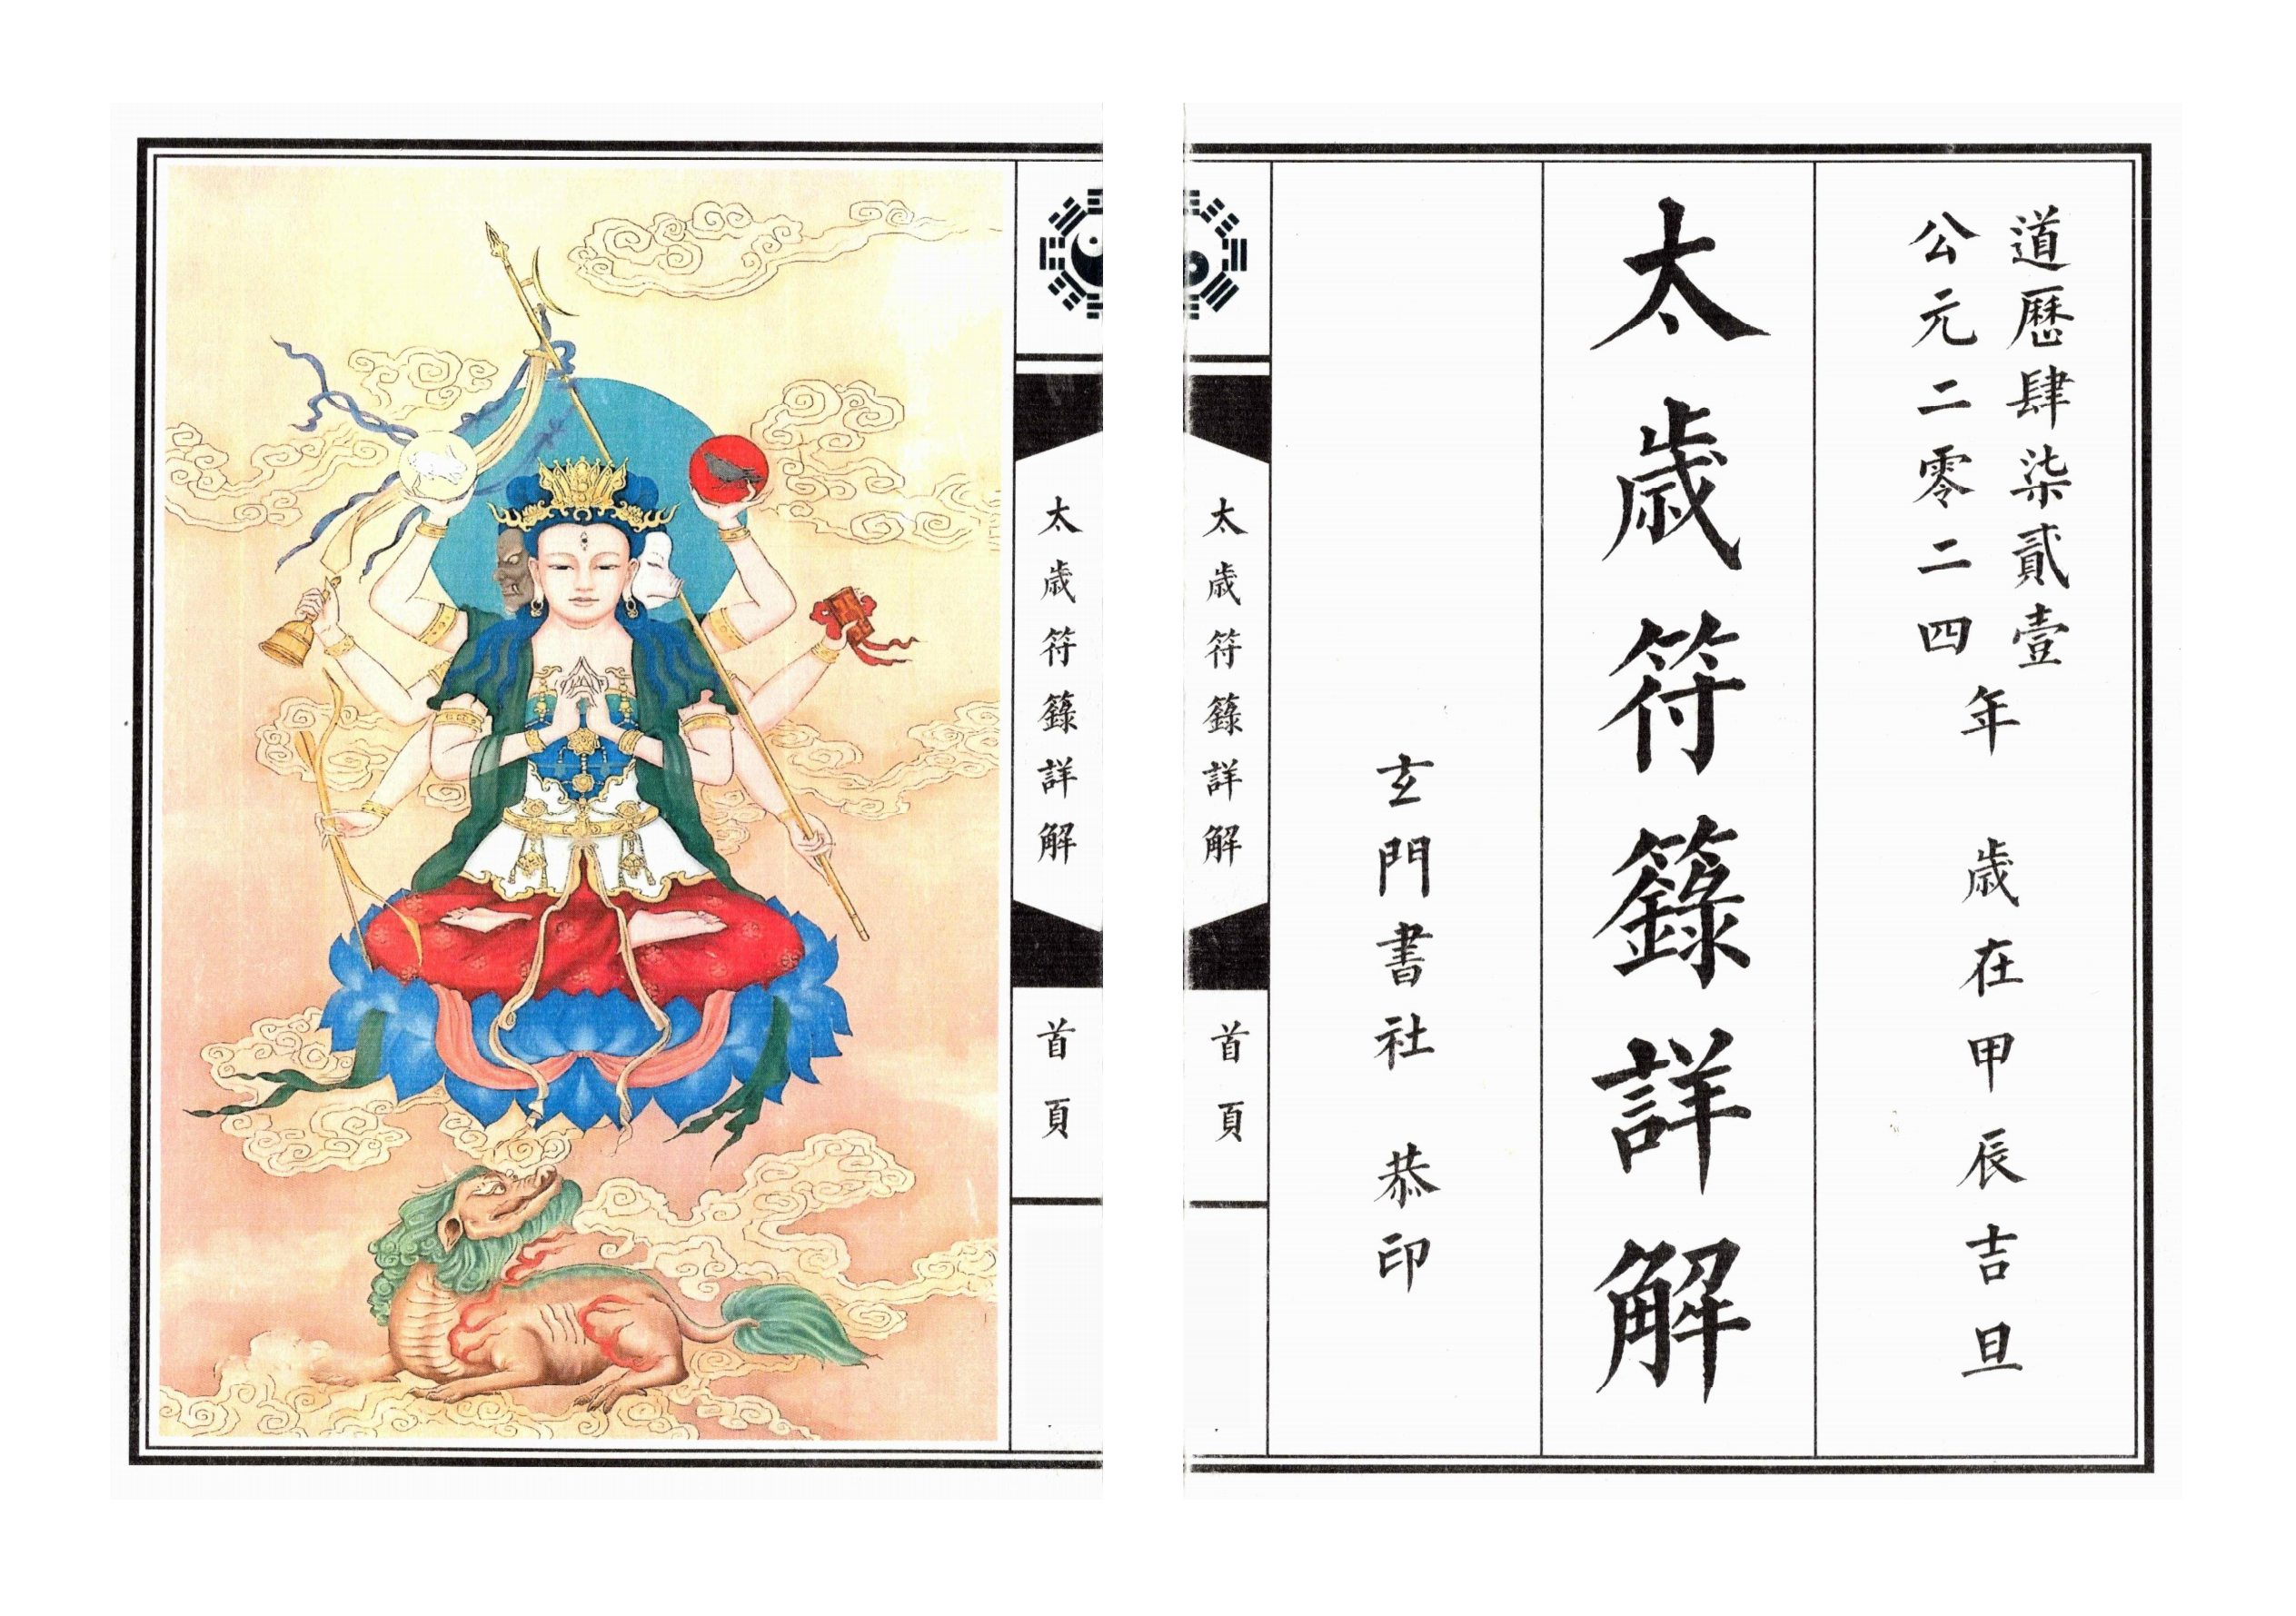 道歷肆柒貳壹
公元二零二四
年 歳在甲辰吉旦
太歳符籙詳解
玄門書社 恭印
太歳符籙詳解
首頁
太歳符籙詳解
首頁